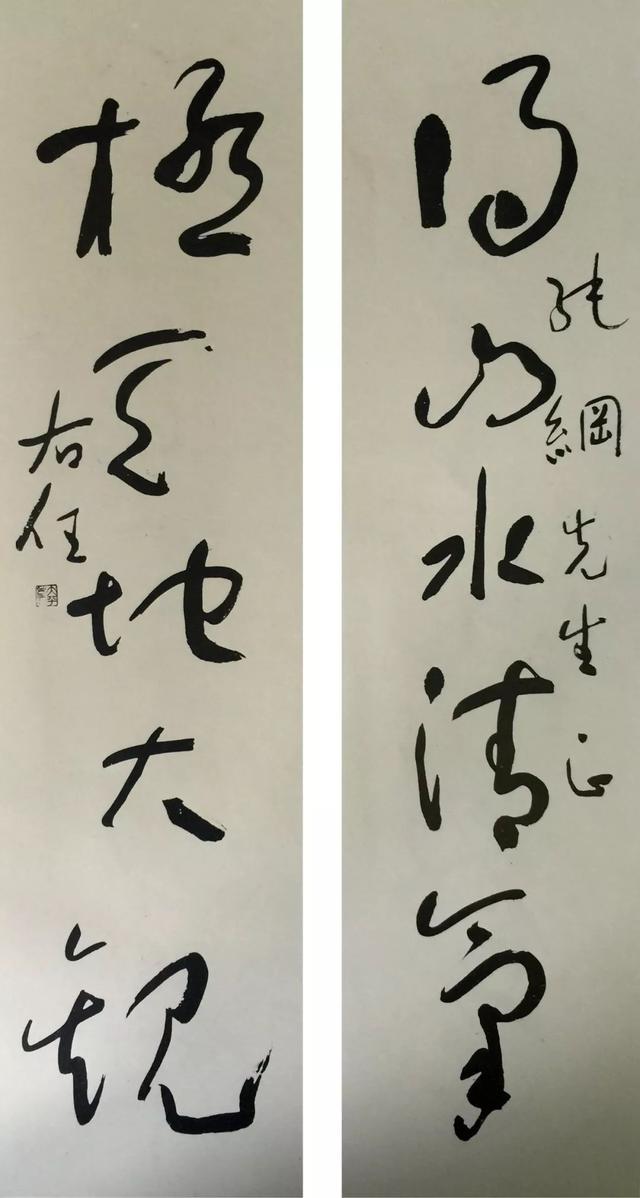 得山水清氣
純綱先生正
極天地大觀
右任